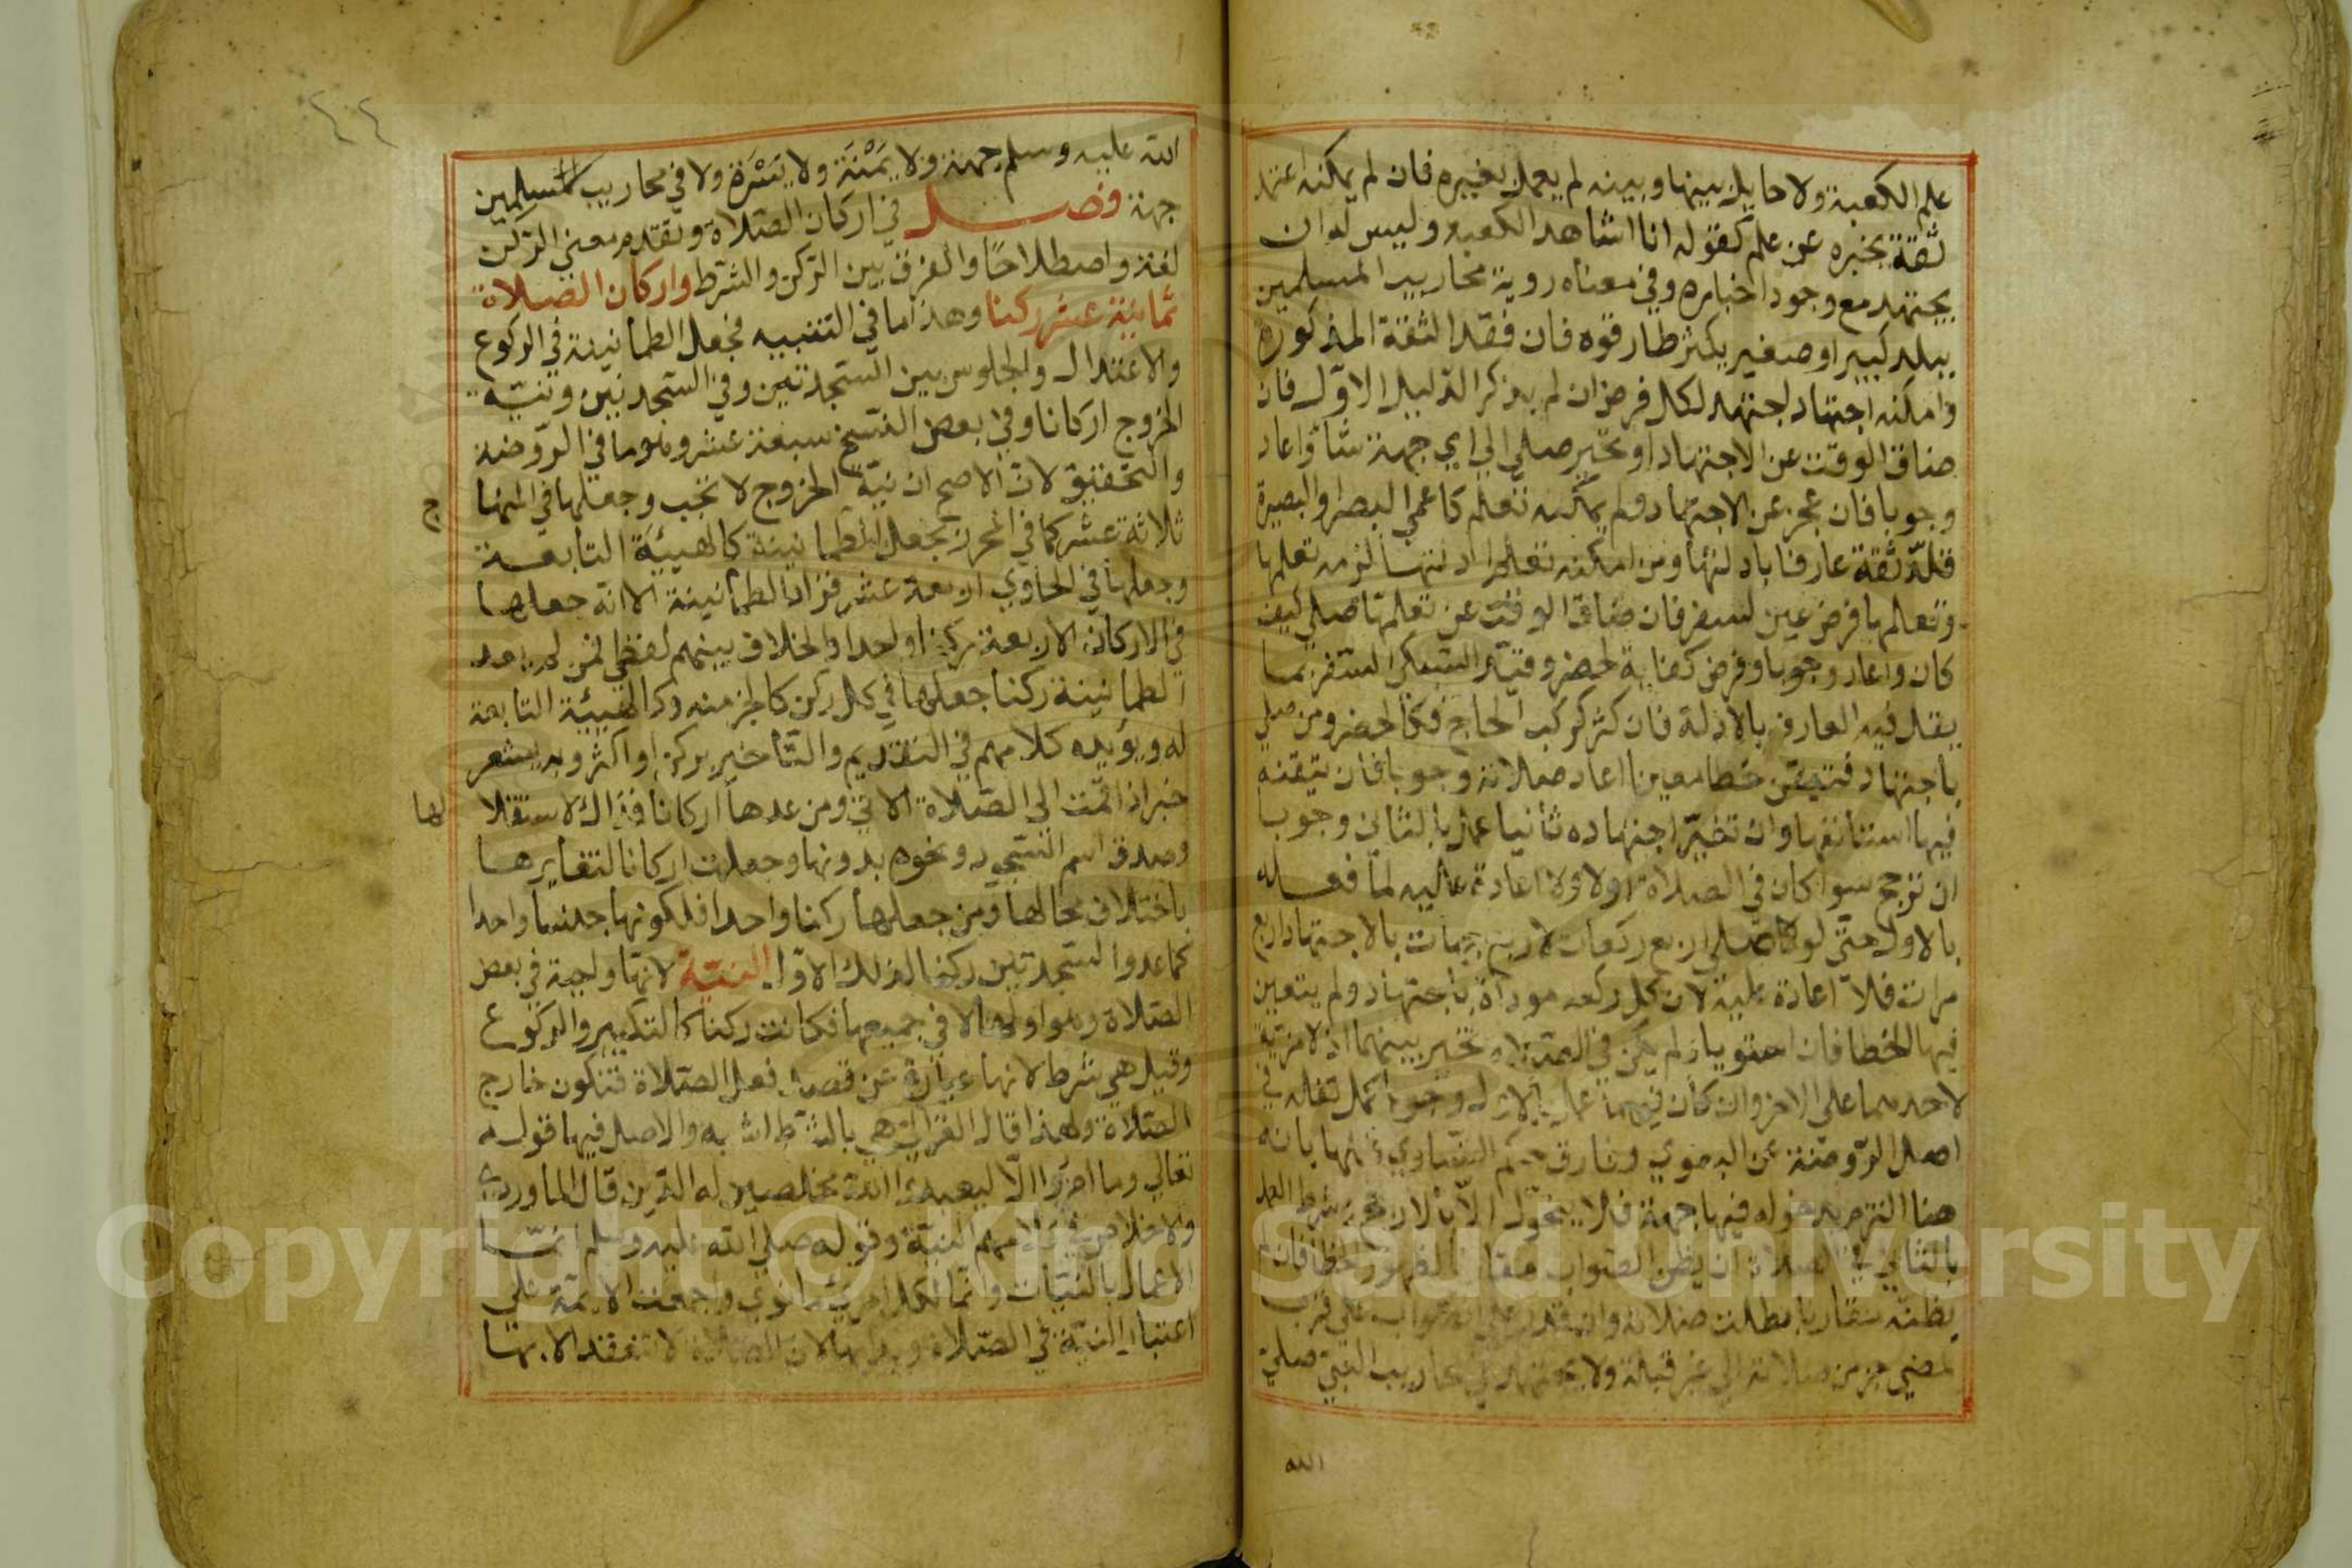 علم الكعبة ولا حايل بينها وبينه لم يعمل بغيره فان لم يمكنه اعتمد
ثقة يخبره عن علم كقوله انا اشاهد الكعبة وليس له ان
يجتهد مع وجود اخباره وفي معناه روية محاريب المسلمين
ببلد كبير او صغير يكثر طارقوه فان فقد الثقة المذكورة
وامكنه اجتهاد اجتهد لكل فرض ان لم يذكر الدليل الاول فان
ضاق الوقت عن الاجتهاد او تحير صلى الى اي جهة شأ واعاد
وجوبا فان عجز عن الاجتهاد ولم يمكنه تعلم كاعمي البصر او البصيرة
قلد ثقة عارفا بادلتها ومن امكنه تعلم ادلتها لزمه تعلمها
وتعلمها فرض عين لسفر فان ضاق الوقت عن تعلمها صلي كيف
كان واعاد وجوبا وفرض كفاية لحضر وقيد السبكي السفر بما
يقل فيه العارف بالادلة فان كثر كركب الحاج فكالحضر ومن صلي
باجتهاد فتيقن خطا معينا اعاد صلاته وجوبا فان تيقنه
فيها استأنفها وان تغير اجتهاده ثانيا عمل بالثاني وجوبا
ان ترجح سوا كان في الصلاة اولا ولا اعادة عليه لما فعله
بالاول حتى لو صلي اربع ركعات لاربع جهات بالاجتهاد اربع
مرات فلا اعادة عليه لان كل ركعه موداة باجتهاد ولم يتعين
فيها الخطا فان استويا ولم يكن في الصلاة تخير بينهما اذ لا مزية
لاحدهما على الاخر وان كان فيها عمل بالاول وجوبا كما نقله في
اصل الروضة عن البغوي وفارق حكم التساوي قبلها بانه
هنا التزم بدخوله فيها جهة فلا يتحول الا بالارجح وشرط العمل
بالثاني في الصلاة ان يظن الصواب مقارنا لظهور الخطا فان لم
يظنه مقارنا بطلت صلاته وان قدر على الصواب على قرب
لمضي جز من صلاته الى غير قبلة ولا يجتهد في محاريب النبي صلى
الله
٤٤
الله عليه وسلم جهة ولا يَمْنَة ولا يَسْرَة ولا في محاريب المسلمين
جهة فصل في اركان الصلاة وتقدم معنى الركن
لغة واصطلاحًا والفرق بين الركن والشرط واركان الصلاة
ثمانية عشر ركنا وهذا ما في التنبيه فجعل الطمأنينة في الركوع
والاعتدال والجلوس بين السجدتين وفي السجدتين ونية
الخروج اركانا وفي بعض النسخ سبعة عشر وهو ما في الروضة
والتحقيق لان الاصح ان نية الخروج لا تجب وجعلها في المنها
ج
ثلاثة عشر كما في المحرر بجعل الطمأنينة كالهيئة التابعة
وجعلها في الحاوي اربعة عشر فزاد الطمأنينة الا انه جعلها
في الاركان الاربعة ركنا واحدا والخلاف بينهم لفظي فمن لم يعد
الطمأنينة ركنا جعلها في كل ركن كالجز منه وكالهيئة التابعة
له ويؤيده كلامهم في التقديم والتأخير بركن او اكثر وبه يشعر
خبر اذا قمت الى الصلاة الاتي ومن عدها اركانا فذاك لاستقلا
لها
وصدق اسم السجود ونحوه بدونها وجعلت اركانا لتغايرها
باختلاف محالها ومن جعلها ركنا واحدا فلكونها جنسا واحدا
كما عدوا السجدتين ركنا لذلك الاول النية لانها واجبة في بعض
الصلاة وهو اولها لا في جميعها فكانت ركنا كالتكبير والركوع
وقيل هي شرط لانها عبارة عن قصد فعل الصلاة فتكون خارج
الصلاة ولهذا قال الغزالي هي بالشرط اشبه والاصل فيها قوله
تعالي وما امروا الا ليعبدوا الله مخلصين له الدين قال الماوردي
والاخلاص في كلامهم النية وقوله صلى الله عليه وسلم انما
الاعمال بالنيات وانما لكل امرئ ما نوى واجمعت الامة على
اعتبار النية في الصلاة وبدا بها لان الصلاة لا تنعقد الا بها
Copyright © King Saud University